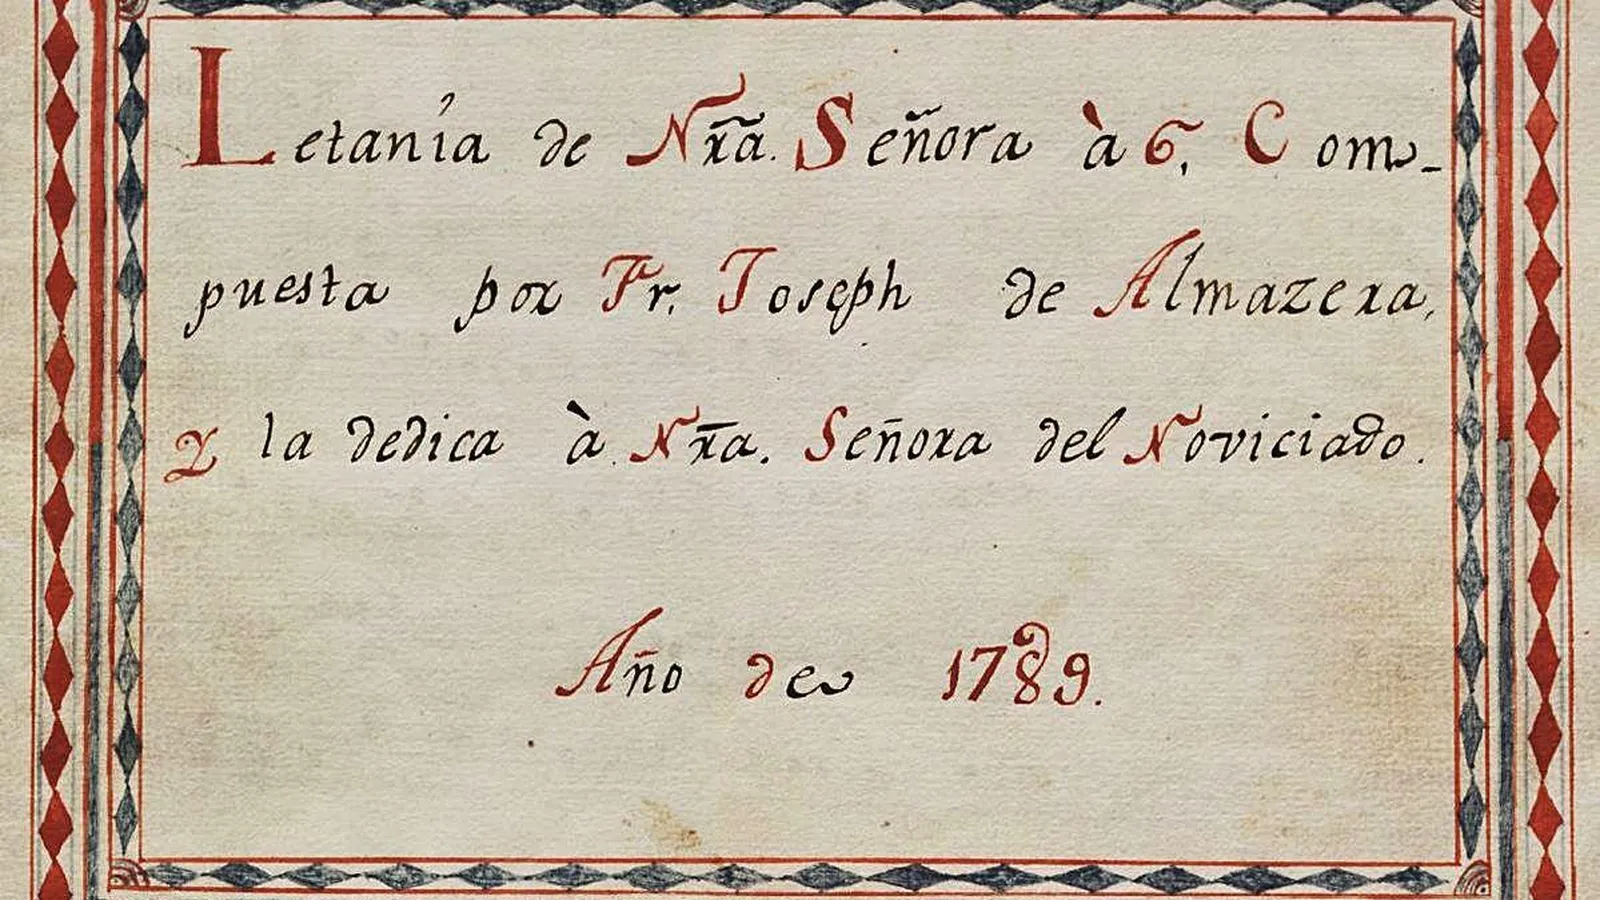 Letanía de Nr̃a. Señora à 6, Com-
puesta por Fr. Joseph de Almazera,
Y la dedica à Nr̃a. Señora del Noviciado.
Año de 1789.